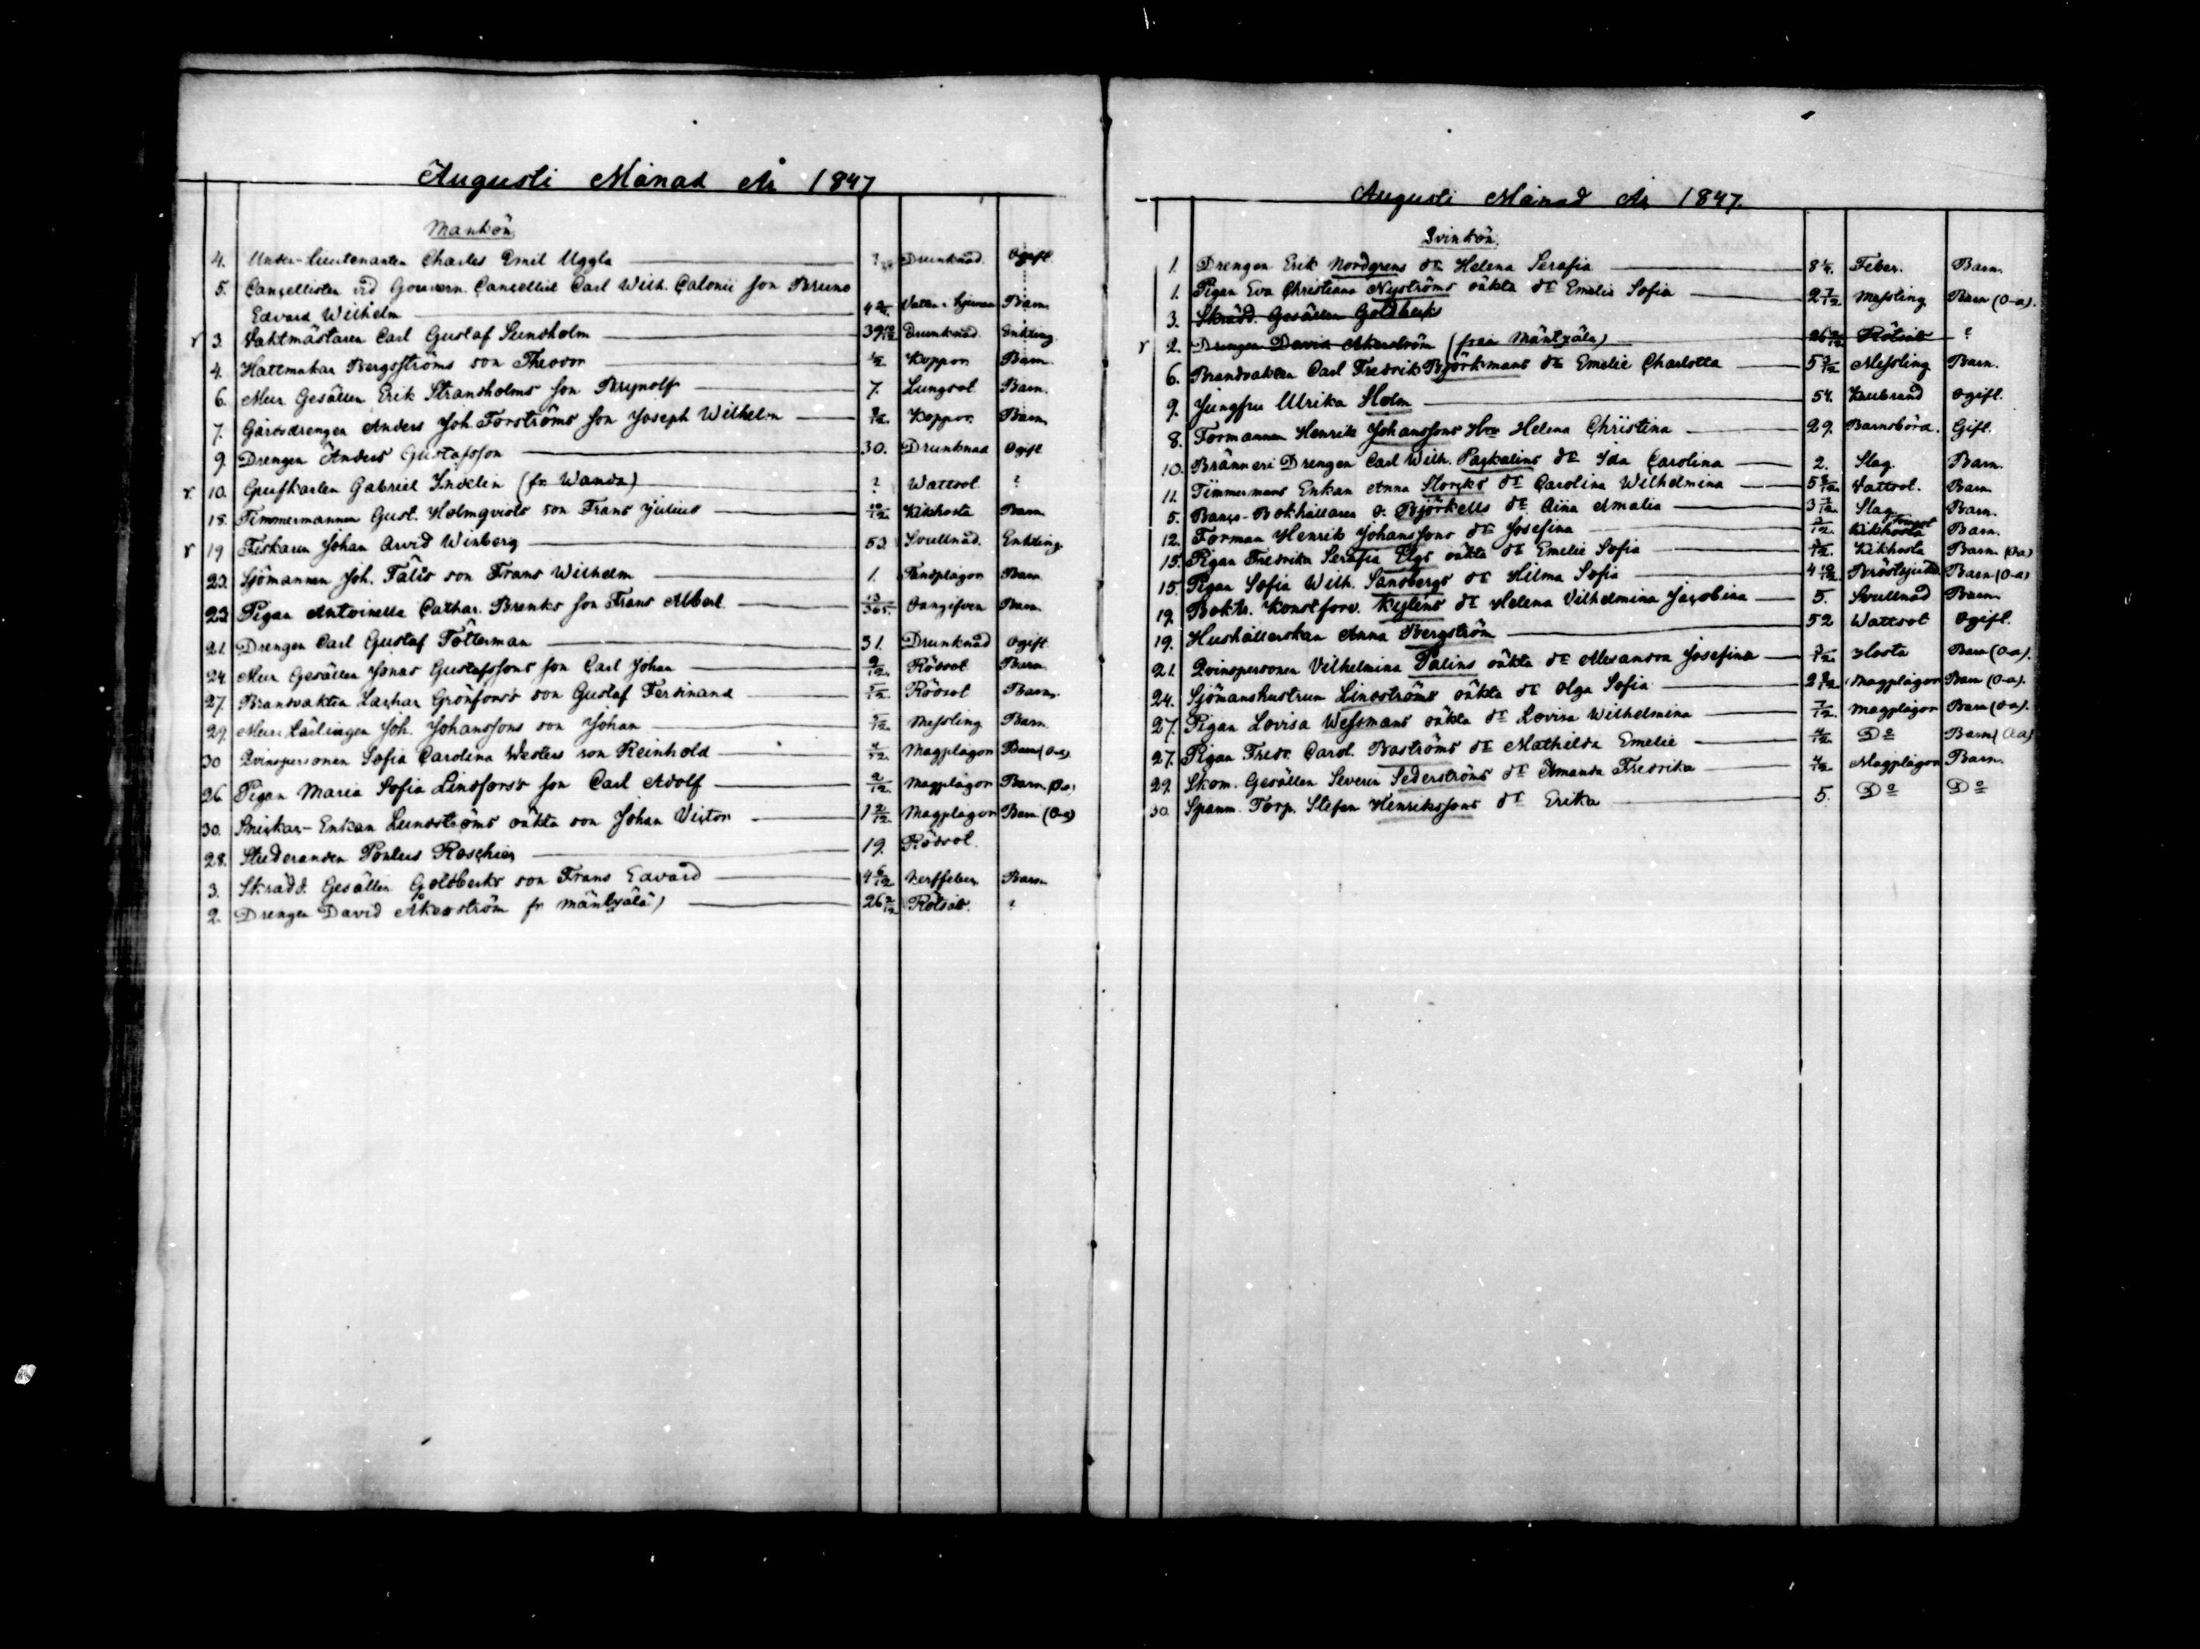 Augusti Månad År 1847
Mankön
4. Under-Lieutenanten Charles Emil Uggla ? Drunknad. Ogift
5. Cancellisten vid Gouvern. Cancelliet Carl Wilh. Calonii son Bruno
Edvard Wilhelm Barn
r 3. Vaktmästaren Carl Gustaf Sundholm 39 10/12 Drunknad. Enkling
4. Hattmakar Bergströms son Theodor 1/2 Koppor Barn
6. Mur Gesällen Erik Strandholms son Brynolf 7. Lungsot Barn.
7. Gårdsdrengen Anders Joh. Forströms son Joseph Wilhelm Koppor. Barn
9. Drengen Anders Gustafsson 30. Drunknad Ogift
r. 10. Gabriel Indelin (fr Wanda) ? Wattsot ?
18. Timmermannen Gust. Holmqvists son Frans Julius 10/12 Kikhosta Barn
r 19 Fiskaren Johan Arvid Winberg 53. Svullnad. Enkling
23. Sjömannen Joh. Tälis son Frans Wilhelm 1. Tandplågor Barn
23 Pigan Antoinetta Cathar. Brenks son Frans Albert 13/365. Oangifven Barn
21 Drengen Carl Gustaf Tötterman 31. Drunknad Ogift
24 Mur Gesällen Jonas Gustafssons son Carl Johan 9/12. Rödsot Barn
27. Brandvakten Zachar Grönfors's son Gustaf Ferdinand Rödsot Barn.
29. Mur Lärlingen Joh. Johanssons son Johan Messling Barn
30 Qvinspersonen Sofia Carolina Westers son Reinhold Magplågor Barn (O-a)
26 Pigan Maria Sofia Lindfors's son Carl Adolf 2/12 Magplågor Barn (O-a)
30. Snickar-Enkan Lundströms oäkta son Johan Victor 1 2/12 Magplågor Barn (O-a)
28. Studeranden Pontus Roschier 19. Rödsot
3. Skrädd. Gesällen Goldbecks son Frans Edvard 4 6/12 Nerffeber Barn
2. Drengen David Åkerström fr Mäntzälä) 26 2/12 Rötsår. ?
Augusti Månad År 1847.
Qvinkön.
1. Drengen Erik Nordgrens dr Helena Serafia 8 1/4. Feber. Barn.
1. Pigan Eva Christiana Nyströms oäkta dr Emelie Sofia 2 7/12 Messling Barn (O-a).
3. Skrädd. Gesällen Goldbeck
r 2. Drengen David Åkerström (från Mäntzälä) 26 2/12 Rötsår ?
6. Brandvakten Carl Fredrik Björkmans dr Emelie Charlotta Messling Barn.
9. Jungfru Ulrika Holm 54. Ogift.
8. Formannen Henrik Johanssons Hru Helena Christina 29. Barnsbörd. Gift.
10. Bränneri Drengen Carl Wilh. Paskalins dr Ida Carolina 2. Slag. Barn.
11. Timmermans Enkan Anna Storcks dr Carolina Wilhelmina Vattsot. Barn
5. Banco-Bokhållaren O. Björkells dr Aina Amalia Slag. Barn.
12. Forman Henrik Johanssons dr Josefina Kikhosta Barn.
15. Pigan Fredrika Serafia Elgs oäkta dr Emelie Sofia Kikhosta Barn (O-a)
15. Pigan Sofia Wilh. Sandbergs dr Hilma Sofia 4 10/12 Bröstsjukd. Barn (O-a)
19. Bokh. Konstforv. Kyléns dr Helena Vilhelmina Jacobina 5. Svullnad Barn
19. Hushållerskan Anna Bergström 52 Wattsot Ogift.
21. Qvinspersonen Vilhelmina Palins oäkta dr Alexandra Josefina Hosta Barn (O-a).
24. Sjömanshustrun Lindströms oäkta dr Olga Sofia Magplågor Barn (O-a).
27. Pigan Lovisa Wessmans oäkta dr Lovisa Wilhelmina 7/12. Magplågor Barn (O-a).
27. Pigan Fredr. Carol. Baströms dr Mathilda Emelie Do Barn (O-a)
29. Skom. Gesällen Severin Sederströms dr Amanda Fredrika Magplågor Barn.
30. Spanm. Torp. Stefan Henrikssons dr Erika 5. Do Do